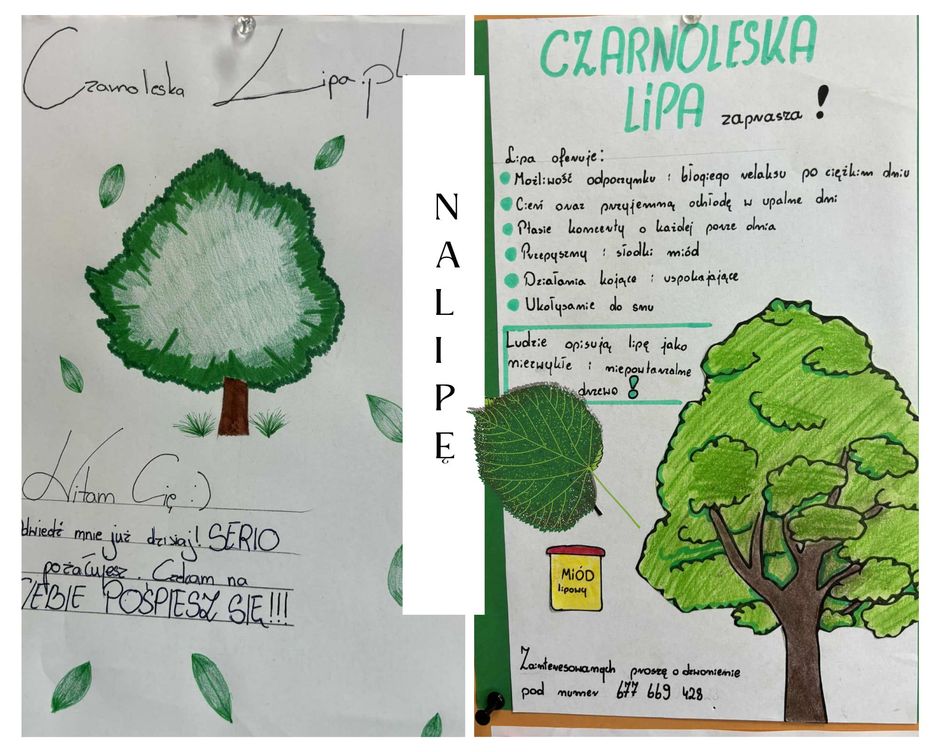 Czarnoleska Lipa.pl
Witam Cię :)
dwiedź mnie już dzisiaj! SERIO
pożałujesz. Czekam na
CIEBIE POŚPIESZ SIĘ!!!
NA LIPĘ
CZARNOLESKA
LiPA zaprasza!
Lipa oferuje:
Możliwość odpoczynku i błogiego relaksu po ciężkim dniu
Cień oraz przyjemną ochłodę w upalne dni
Ptasie koncerty o każdej porze dnia
Przepyszny i słodki miód
Działania kojące i uspokajające
Ukołysanie do snu
Ludzie opisują lipę jako
niezwykłe i niepowtarzalne
drzewo!
MiÓD
lipowy
Zainteresowanych proszę o dzwonienie
pod numer 677 669 428